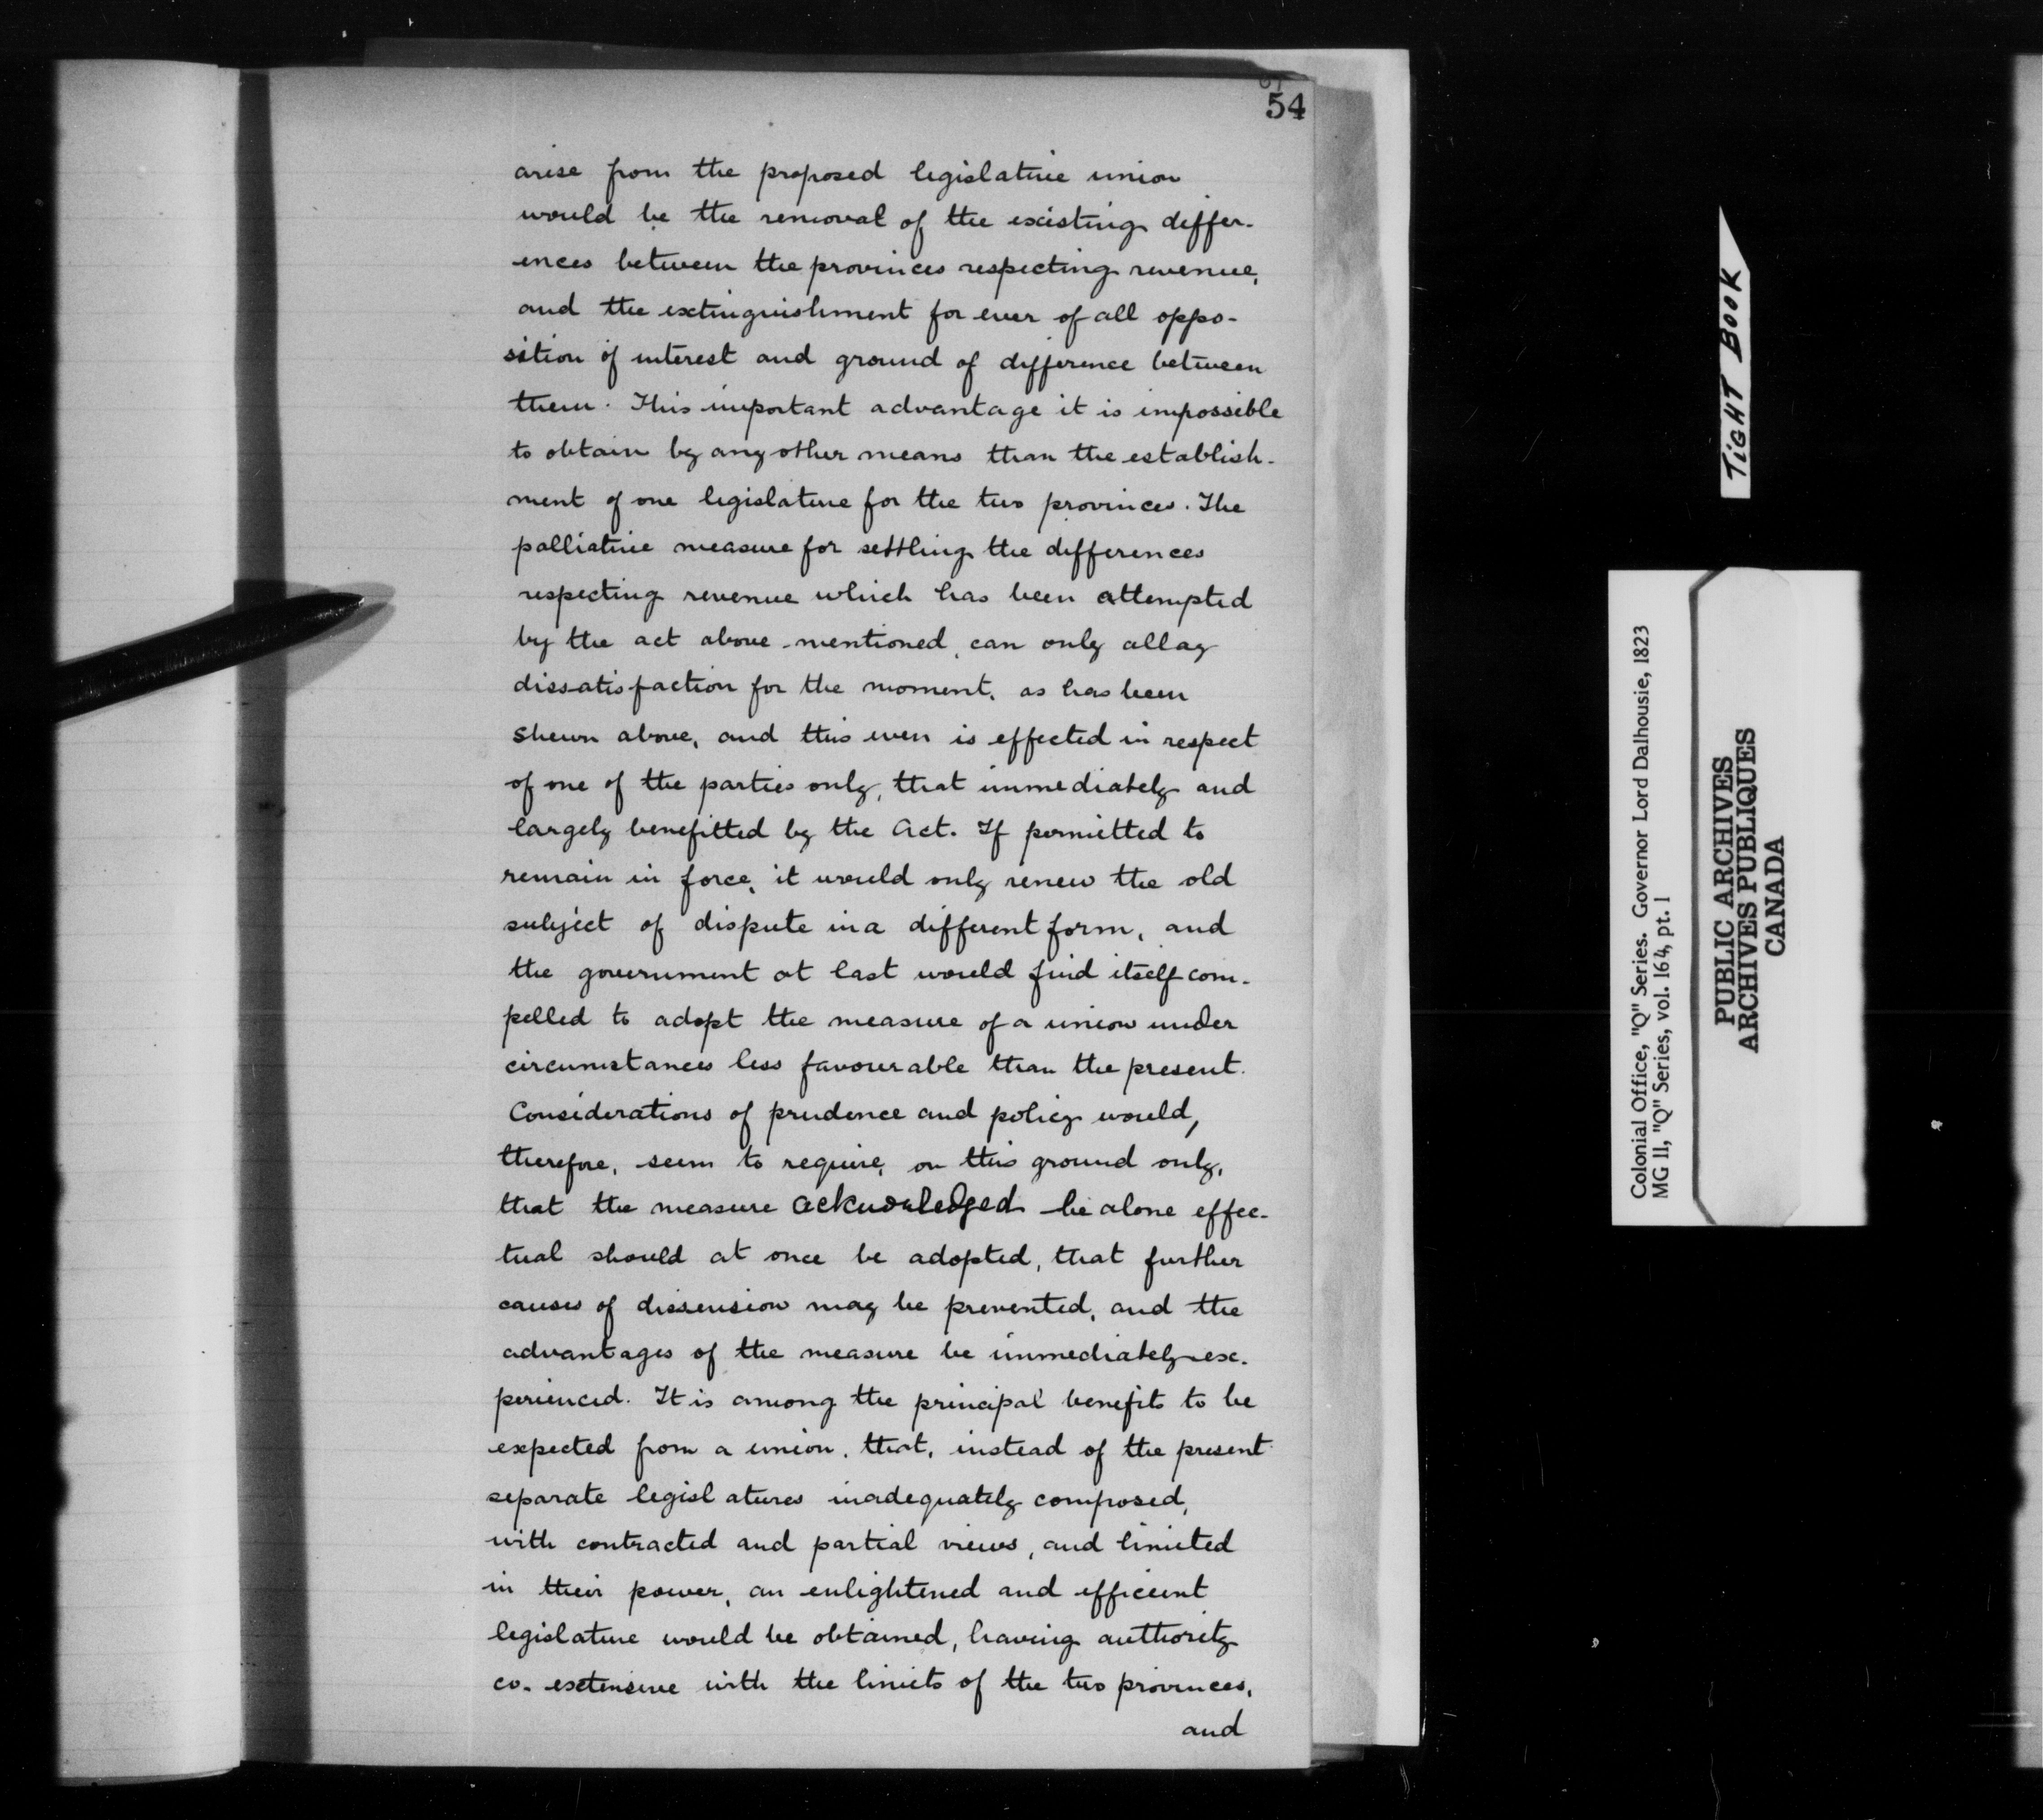 54
arise from the proposed legislative union
would be the removal of the existing differ-
ences between the provinces respecting revenue,
and the extinguishment for ever of all oppo-
sition of interest and ground of difference between
them. This important advantage it is impossible
to obtain by any other means than the establish-
ment of one legislature for the two provinces. The
palliative measure for settling the differences
respecting revenue which has been attempted
by the act above-mentioned, can only allay
dissatisfaction for the moment, as has been
shewn above, and this even is effected in respect
of one of the parties only, that immediately and
largely benefitted by the Act. If permitted to
remain in force, it would only renew the old
subject of dispute in a different form, and
the government at last would find itself com-
pelled to adopt the measure of a union under
circumstances less favourable than the present.
Considerations of prudence and policy would,
therefore, seem to require, on this ground only,
that the measure acknowledged be alone effec-
tual should at once be adopted, that further
causes of dissension may be prevented, and the
advantages of the measure be immediately ex-
perienced. It is among the principal benefits to be
expected from a union, that, instead of the present
separate legislatures inadequately composed,
with contracted and partial views, and limited
in their power, an enlightened and efficient
legislature would be obtained, having authority
co-extensive with the limits of the two provinces,
and
TIGHT BOOK
Colonial Office, "Q" Series. Governor Lord Dalhousie, 1823
MG 11, "Q" Series, vol. 164, pt. 1
PUBLIC ARCHIVES
ARCHIVES PUBLIQUES
CANADA